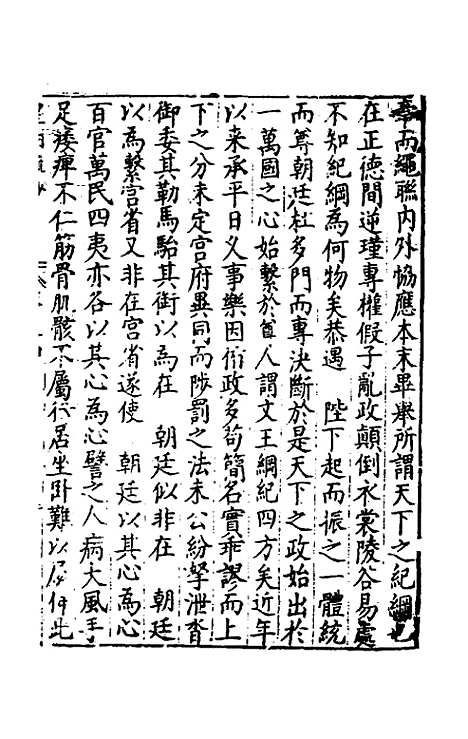 牽而繩聯内外恊應本末畢舉所謂天下之紀綱也
在正德間逆瑾專權假子亂政顛倒衣裳陵谷易處
不知紀綱為何物矣恭遇　陛下起而振之一體統
而尊朝廷杜多門而專決斷於是天下之政始出於
一萬國之心始繫於　人謂文王綱紀四方矣近年
以来承平日乂事樂因循政多苟簡名實乖謬而上
下之分未定宫府異同而陟罰之法未公紛拏泄沓
御委其勒馬駘其銜以為在　朝廷似非在　朝廷
以為繫宫省又非在宫省遂使　朝廷以其心為心
百官萬民四夷亦各以其心為心譬之人病大風手
足痿痺不仁筋骨肌骸不屬行居坐卧難以屈伸此